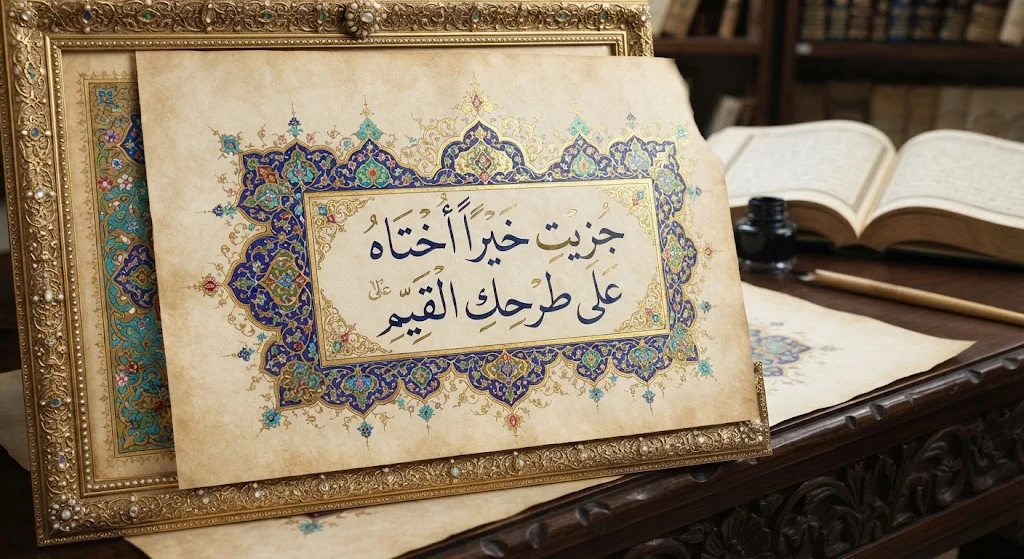 جُزيْتِ خَيْراً أُخْتَاهُ
عَلَى طَرْحِكِ القَيِّمِ